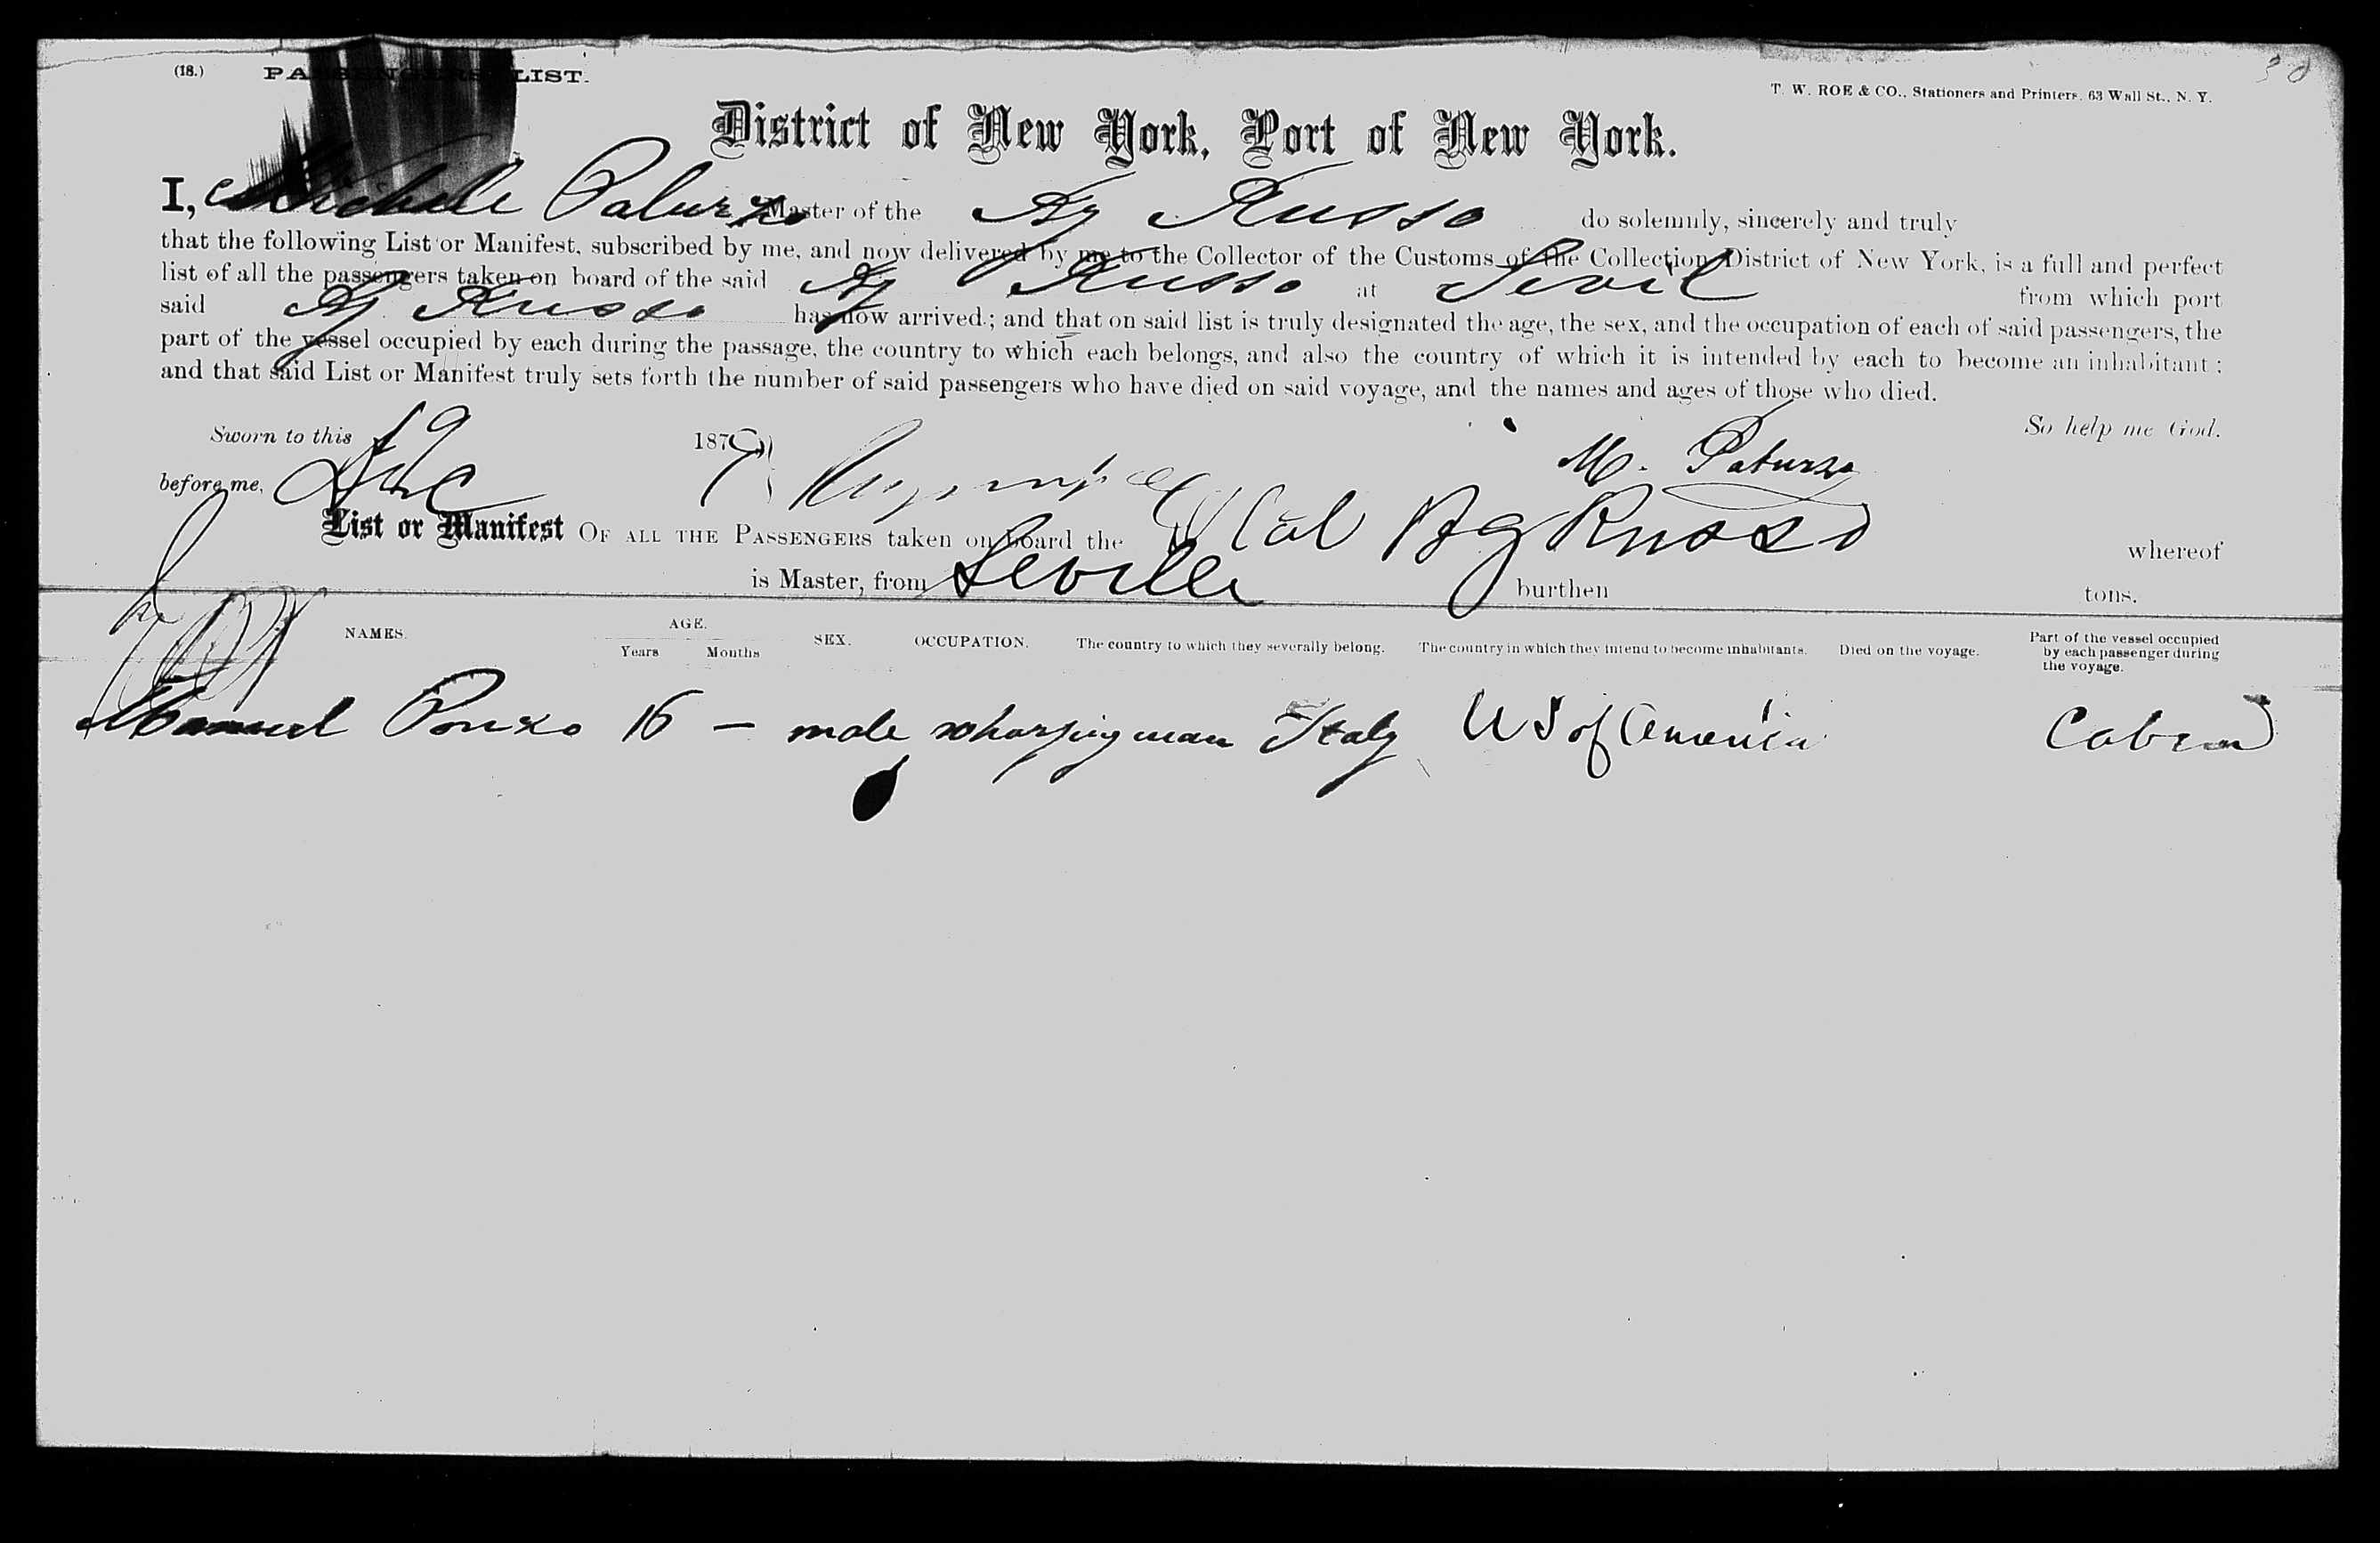 (18.) PASSENGERS LIST.
38
T. W. ROE & CO., Stationers and Printers, 63 Wall St., N. Y.
District of New York, Port of New York.
I, Michele Paturzo Master of the Ag Russo do solemnly, sincerely and truly
that the following List or Manifest, subscribed by me, and now delivered by me to the Collector of the Customs of the Collection District of New York, is a full and perfect
list of all the passengers taken on board of the said Ag Russo at Sevil from which port
said Ag Russo has now arrived; and that on said list is truly designated the age, the sex, and the occupation of each of said passengers, the
part of the vessel occupied by each during the passage, the country to which each belongs, and also the country of which it is intended by each to become an inhabitant;
and that said List or Manifest truly sets forth the number of said passengers who have died on said voyage, and the names and ages of those who died.
So help me God.
Sworn to this 19 1879
M. Paturzo
before me, Dec
List or Manifest OF ALL THE PASSENGERS taken on board the Ital Bg Russo whereof
is Master, from Seville burthen tons.
NAMES. AGE. Years Months SEX. OCCUPATION. The country to which they severally belong. The country in which they intend to become inhabitants. Died on the voyage. Part of the vessel occupied by each passenger during the voyage.
Manuel Ponzo 16 — male Italy US of America Cabin